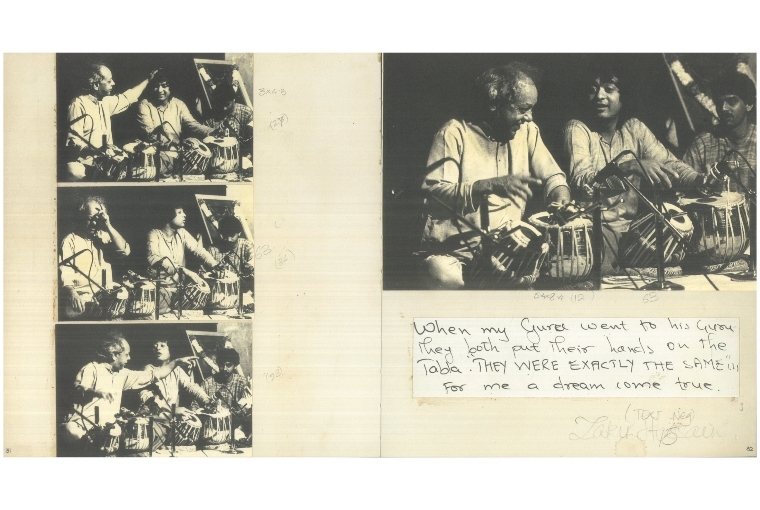 (27)
63
51
(12)
53
When my Guru went to his Guru
They both put their hands on the
Tabla. THEY WERE EXACTLY THE SAME"!!!
For me a dream come true.
(Text Neg)
Zakir Hussain
52